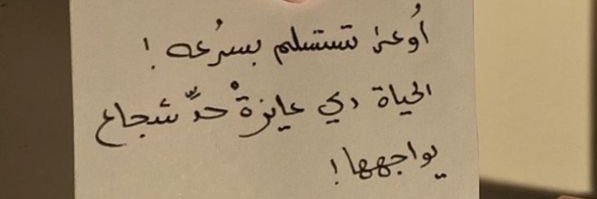 أُوعى تستسلم بسرُعه !
الحياة دي عايزةْ حدّ شجاع
يواجهها !